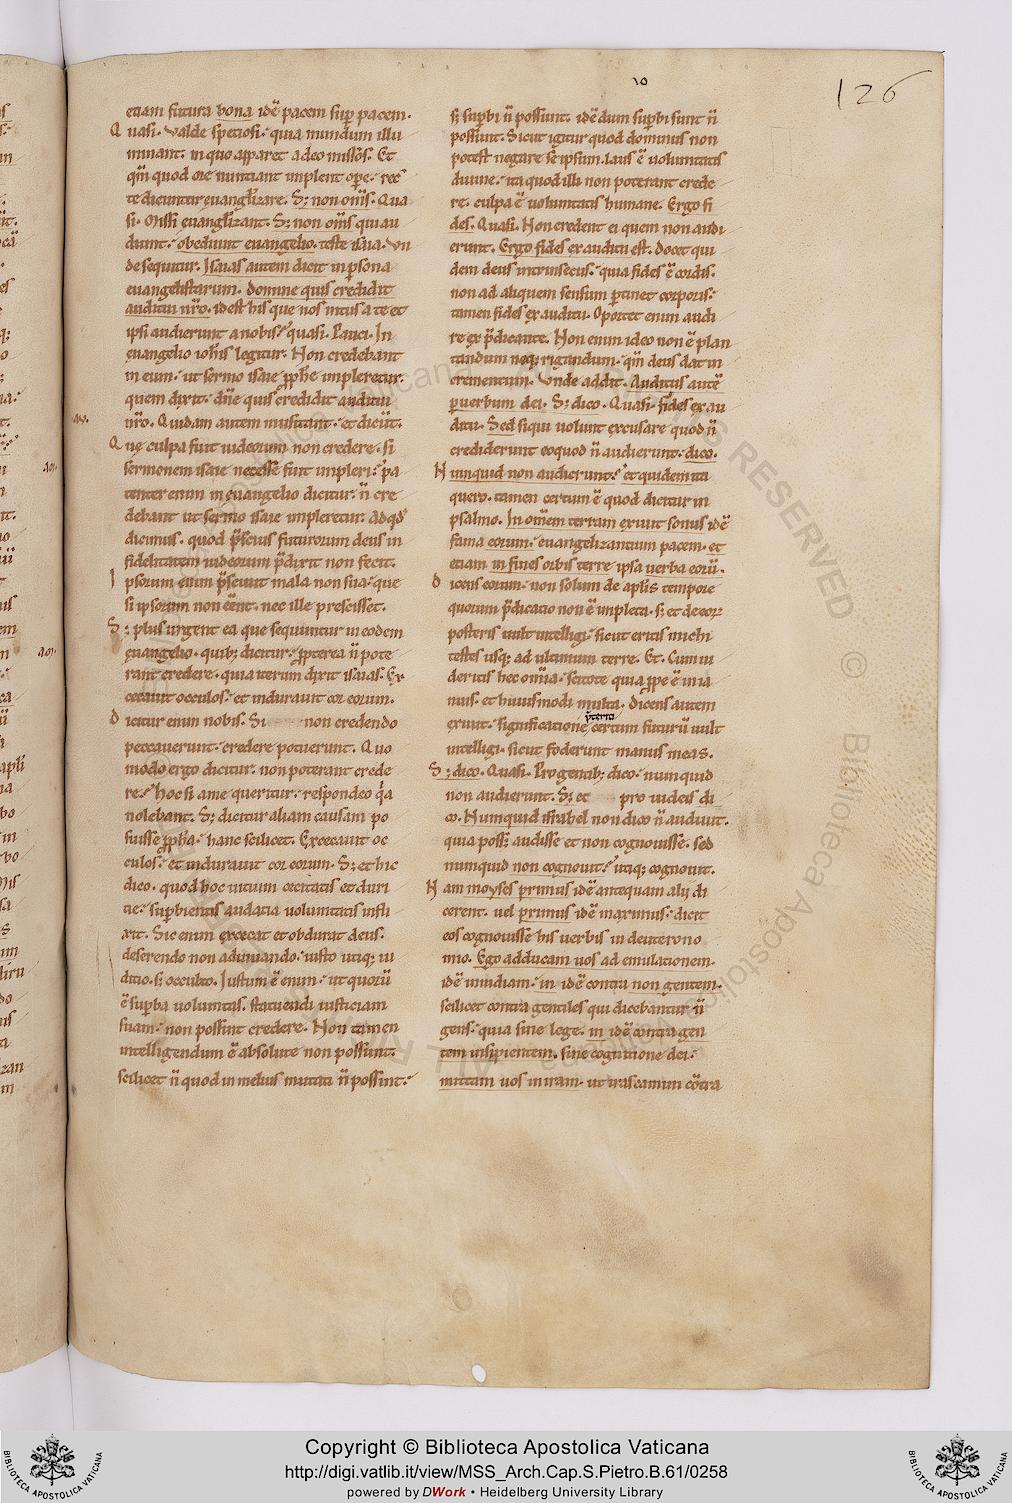 10
126
etiam futura bona idē pacem suꝑ pacem.
Quasi. Valde speciosi. quia mundum illu
minant. in quo apparet adeo missos. Et
qm̄ quod ore nuntiant implent oꝑe. rec
te dicuntur euanglizare. S; non om̄s. Qua
si. Missi euanglizant. S; non om̄s qui au
diunt. obediunt euangelio. teste isaia. Vn
de sequitur. Isaias autem dicit in ꝑsona
euangelistarum. Domine quis credidit
auditui nr̄o. id est his que nos intus a te et
ipsi audierunt a nobis. quasi. Pauci. In
euangelio ioh̄is legitur. Non credebant
in eum. ut sermo isaie ꝓph̄e impleretur.
quem dixit. dn̄e quis credidit auditui
nr̄o. Quidam autem musitant. et dicūt.
Que culpa fuit iudeorum non credere. si
sermonem isaie necesse fuit impleri. pa
tenter enim in euangelio dicitur. n̄ cre
debant ut sermo isaie impleretur. Ad qd
dicimus. quod p̄scius futurorum deus in
fidelitatem iudeorum p̄dixit non fecit.
Ipsorum enim p̄sciuit mala non sua. que
si ipsorum non eēnt. nec ille prescisset.
S; plus urgent ea que sequuntur in eodem
euangelio. quib; dicitur. ꝓpterea n̄ pote
rant credere. quia iterum dixit isaias. Ex
cecauit occulos. et indurauit cor eorum.
Dicitur enim nobis. Si non credendo
peccauerunt. credere potuerunt. Quo
modo ergo dicitur. non poterant crede
re. hoc si a me queritur. respondeo qa
nolebant. S; dicitur aliam causam po
suisse ꝓph̄a. hanc scilicet. Excecauit oc
culos. et indurauit cor eorum. S; et hic
dico. quod hoc uitium cecitatis et duri
tie. suꝑbientis audatia uoluntatis infli
xit. Sic enim excecat et obdurat deus.
deserendo non adiuuando. iusto utiq; iu
ditio. s; occulto. Iustum ē enim. ut quorū
ē suꝑba uoluntas. statuendi iusticiam
suam. non possint credere. Non tamen
intelligendum ē absolute non possunt.
scilicet n̄ quod in melius mutati n̄ possint.
s; suꝑbi n̄ possunt. idē dum suꝑbi sunt n̄
possunt. Sicut igitur quod dominus non
potest negare se ipsum. laus ē uoluntatis
diuine. ita quod illi non poterant crede
re. culpa ē uoluntatis humane. Ergo fi
des. Quasi. Non credent ei quem non audi
erunt. Ergo fides ex auditu est. docet qui
dem deus intrinsecus. quia fides ē cordis.
non ad aliquem sensum ꝑtinet corporis.
tamen fides ex auditu. Oportet enim audi
re ex p̄dicante. Non enim ideo non ē plan
tandum neq; rigandum. qm̄ deus dat in
crementum. Vnde addit. Auditus autē
ꝑ uerbum dei. S; dico. Quasi. fides ex au
ditu. Sed si qui uolunt excusare quod n̄
crediderunt eo quod n̄ audierunt. dico.
Nunquid non audierunt. et quidem ita
quero. tamen certum ē quod dicitur in
psalmo. In om̄em terram exiuit sonus idē
fama eorum. euangelizantium pacem. et
etiam in fines orbis terre ipsa uerba eorū.
Dicens eorum. non solum de aplis tempore
quorum p̄dicatio non ē impleta. s; et de eor
posteris uult intelligi. sicut eritis michi
testes usq; ad ultimum terre. Et. Cum ui
deritis hec om̄ia. scitote quia ꝓpe ē in ia
nuis. et huiusmodi multa. Dicens autem
p̄teriti
exiuit. significatione certum futurū uult
intelligi. sicut foderunt manus meas.
S; dico. Quasi. Pro gentib; dico. nunquid
non audierunt. S; et pro iudeis di
co. Nunquid israhel non dico n̄ audiuit.
quia poss; audisse et non cognouisse. sed
nunquid non cognouit. utiq; cognouit.
Nam moyses primus idē antequam alij di
cerent. uel primus idē maximus. dicit
eos cognouisse his uerbis in deuterono
mio. Ego adducam uos ad emulationem.
idē inuidiam. in idē contra non gentem.
scilicet contra gentiles qui dicebantur n̄
gens. quia sine lege. in idē contra gen
tem insipientem. sine cognitione dei.
mittam uos in iram. ut irascamini cōtra
Copyright © Biblioteca Apostolica Vaticana
http://digi.vatlib.it/view/MSS_Arch.Cap.S.Pietro.B.61/0258
powered by DWork • Heidelberg University Library